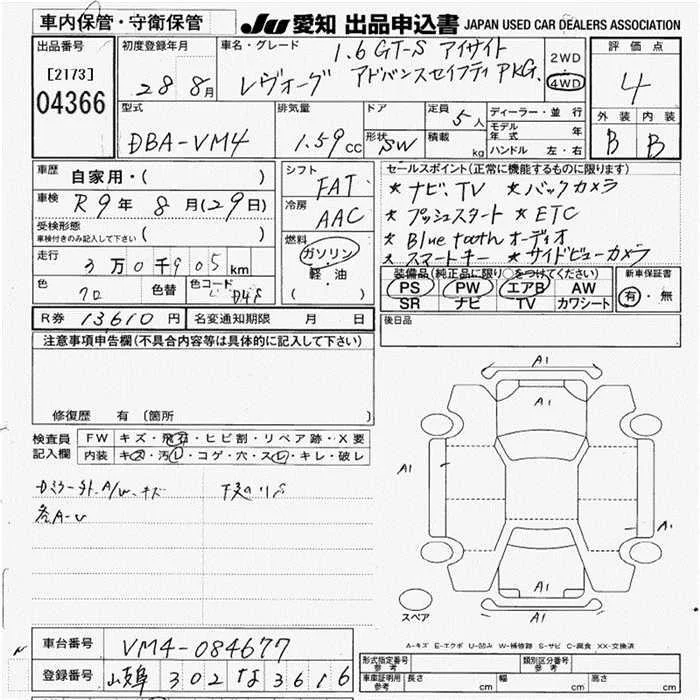 車内保管・守衛保管
JU 愛知 出品申込書 JAPAN USED CAR DEALERS ASSOCIATION
出品番号
[2173]
04366
初度登録年月
28 8月
車名・グレード
1.6 GT-S アイサイト
レヴォーグ アドバンスセイフティ PKG.
2WD
4WD
評価点
4
外装 内装
B B
型式
DBA-VM4
排気量
1.59 CC
ドア
形状 SW
定員 5人
積載 kg
ディーラー・並行
モデル年式 年
ハンドル 左・右
車歴 自家用・( )
車検 R9年 8月(29日)
受検形態
車検付きのみ記入して下さい ( )
走行 3万0千905km
色 クロ 色替 色コード D4S
シフト FAT
冷房 AAC
燃料
ガソリン
軽・油
( )
セールスポイント(正常に機能するものに限ります)
* ナビ、TV * バックカメラ
* プッシュスタート * ETC
* Blue tooth オーディオ
* スマートキー * サイドビューカメラ
装備品(純正品に限り○をつけてください)
PS PW エアB AW
SR ナビ TV カワシート
新車保証書
有・無
R券 13610円 名変通知期限 月 日
後日品
注意事項申告欄(不具合内容等は具体的に記入して下さい)
修復歴 有 〔箇所 〕
検査員記入欄
FW キズ・飛石・ヒビ割・リペア跡・X要
内装 キズ・汚レ・コゲ・穴・スレ・キレ・破レ
各A-U
A1
A1
A1
A1
A1
A1
スペア
A-キズ E-エクボ U-凹み W-補修跡 S-サビ C-腐食 XX-交換済
車台番号 VM4-084677
登録番号 302 な 3616
形式指定番号 参考
類別区分番号 参考
車庫証明用 参考 長さ cm 幅 cm 高さ cm